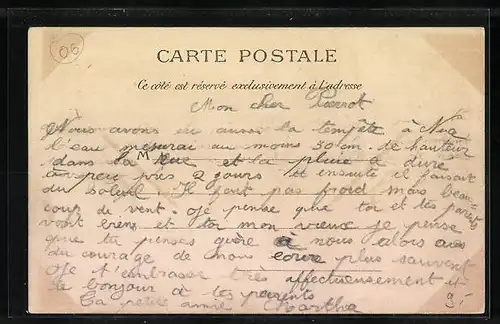 06
CARTE POSTALE
Ce côté est réservé exclusivement à l'adresse
Mon cher Pierrot
Nous avons eu aussi la tempête à
l'eau mesurai au moins 30 cm. de hauteur
dans la Rue et la pluie a duré
a peu près 2 jours et ensuite il faisait
du Soleil. Il fait pas froid mais beau-
coup de vent. Je pense que toi et tes parents
vont biens et toi mon vieux je pense
que tu penses guère à nous alors
du courage de nous écrire plus souvent
Je t'embrasse très affectueusement et
le bonjour à tes parents
Ta petite amie Martha
M
9.-